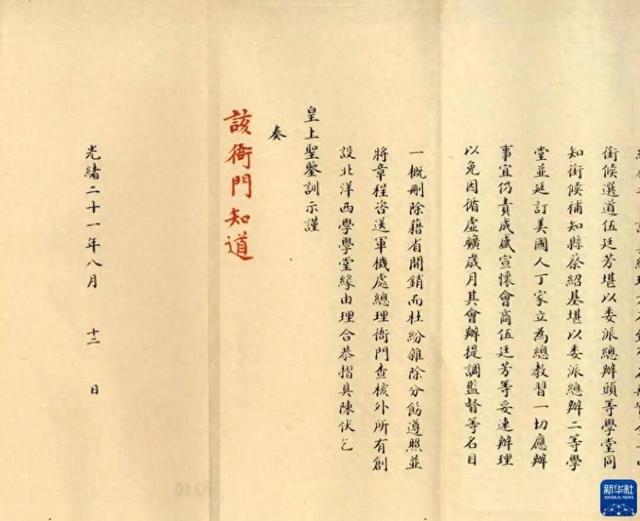 銜候選道伍廷芳堪以委派總辦頭等學堂同
知銜候補知縣蔡紹基堪以委派總辦二等學
堂並延訂美國人丁家立為總教習一切應辦
事宜仍責成盛宣懷會商伍廷芳等妥速辦理
以免因循虛曠歲月其會辦提調監督等名目
一概刪除藉省開銷而杜紛雜除分飭遵照並
將章程咨送軍機處總理衙門查核外所有創
設北洋西學學堂緣由理合恭摺具陳伏乞
皇上聖鑒訓示謹
奏
該衙門知道
光緒二十一年八月 十二 日
新华社